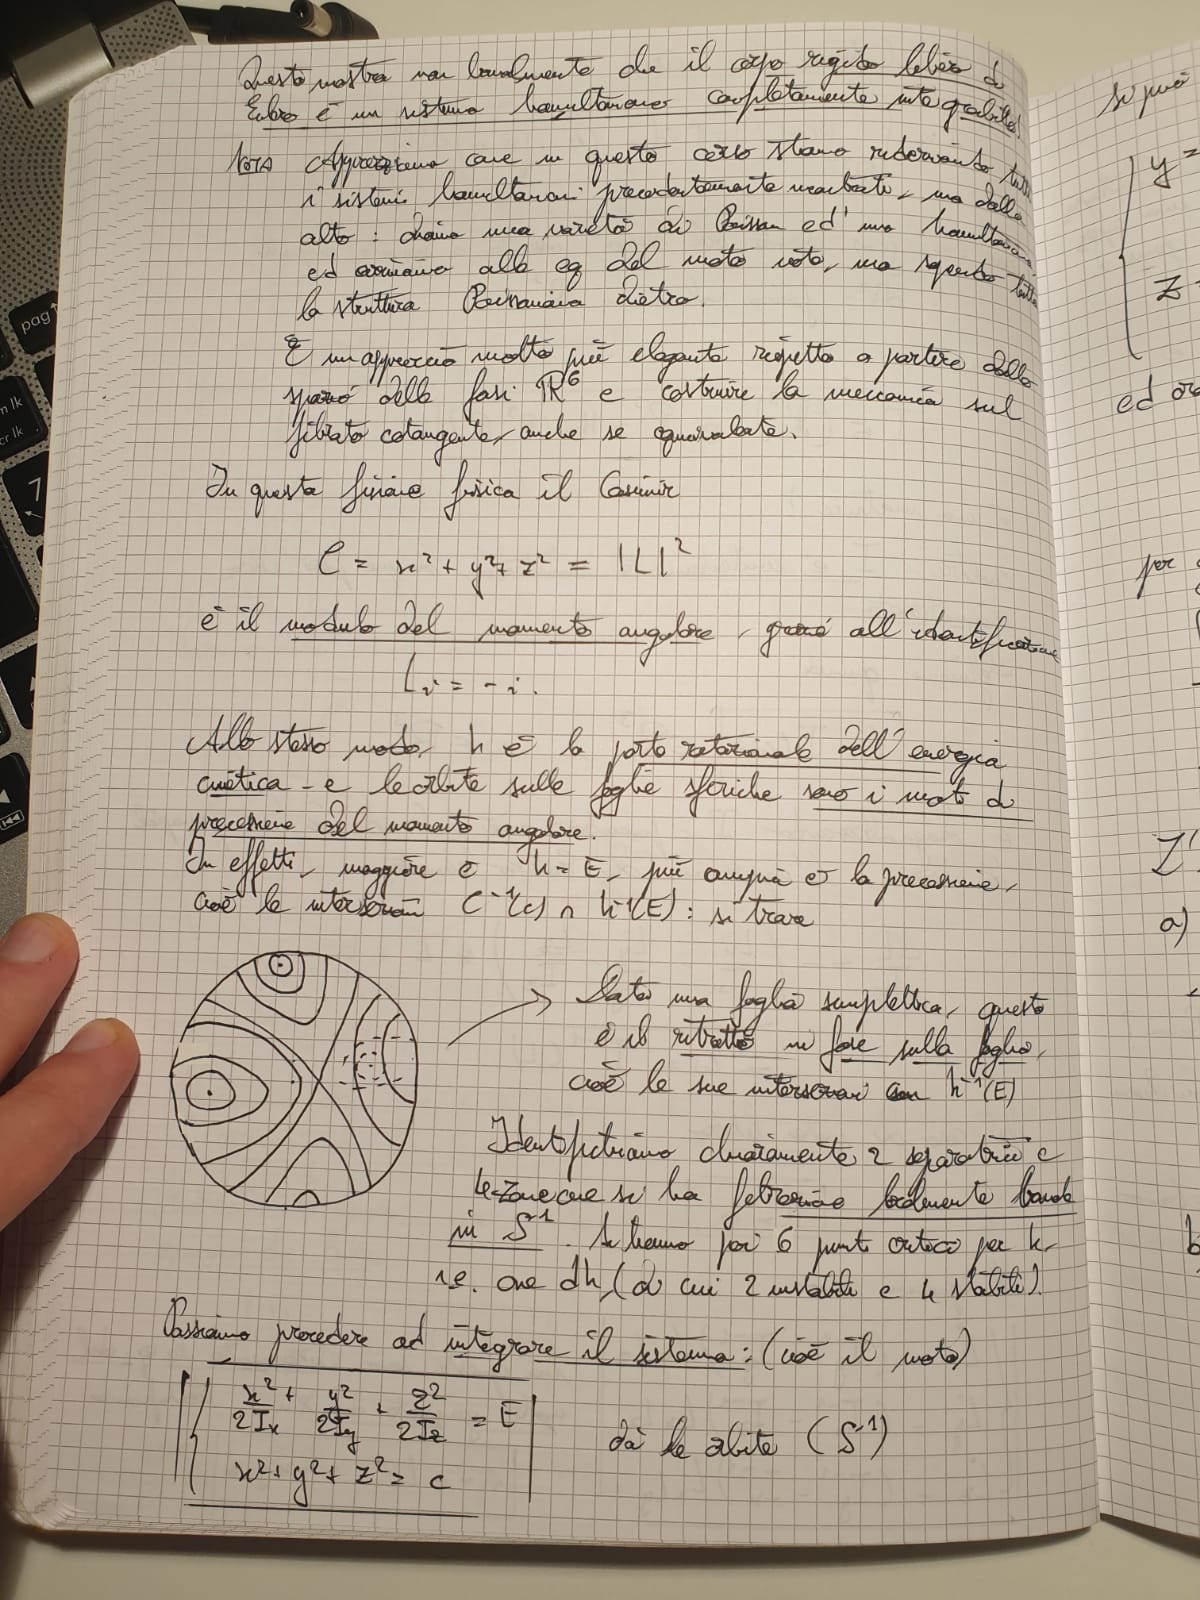 Questo mostra non banalmente che il corpo rigido libero di
Eulero è un sistema hamiltoniano completamente integrabile!
NOTA Apprezziamo come in questo corso stiamo riderivando tutti
i sistemi hamiltoniani precedentemente incontrati, ma dall'
alto: diamo una varietà di Poisson ed un' hamiltoniana,
ed arriviamo alle eq del moto note, ma sapendo tutta
la struttura Poissoniana dietro.
È un approccio molto più elegante rispetto a partire dallo
spazio delle fasi ℝ⁶ e costruire la meccanica sul
fibrato cotangente, anche se equivalente.
In questa fisica il Casimir
C = x² + y² + z² = |L|²
è il modulo del momento angolare, grazie all'identificazione
L_i = - i.
Allo stesso modo, h è la parte rotazionale dell'energia
cinetica - e le orbite sulle foglie sferiche sono i moti di
precessione del momento angolare.
In effetti, maggiore è h = E, più ampia è la precessione,
cioè le intersezioni C⁻¹(c) ∩ h⁻¹(E): si trova
Data una foglia simplettica, questo
è il ritratto in fase sulla foglia,
cioè le sue intersezioni con h⁻¹(E)
Identifichiamo chiaramente 2 separatrici e
4 zone ove si ha fibrazione localmente banale
in S¹. Si hanno poi 6 punti critici per h,
i.e. ove dh, (di cui 2 instabili e 4 stabili).
Possiamo procedere ad integrare il sistema: (cioè il moto)
x²/2I_x + y²/2I_y + z²/2I_z = E
x² + y² + z² = c
dà le orbite (S¹)
Si può
y =
z
ed ora
per
a)
b
pag
7